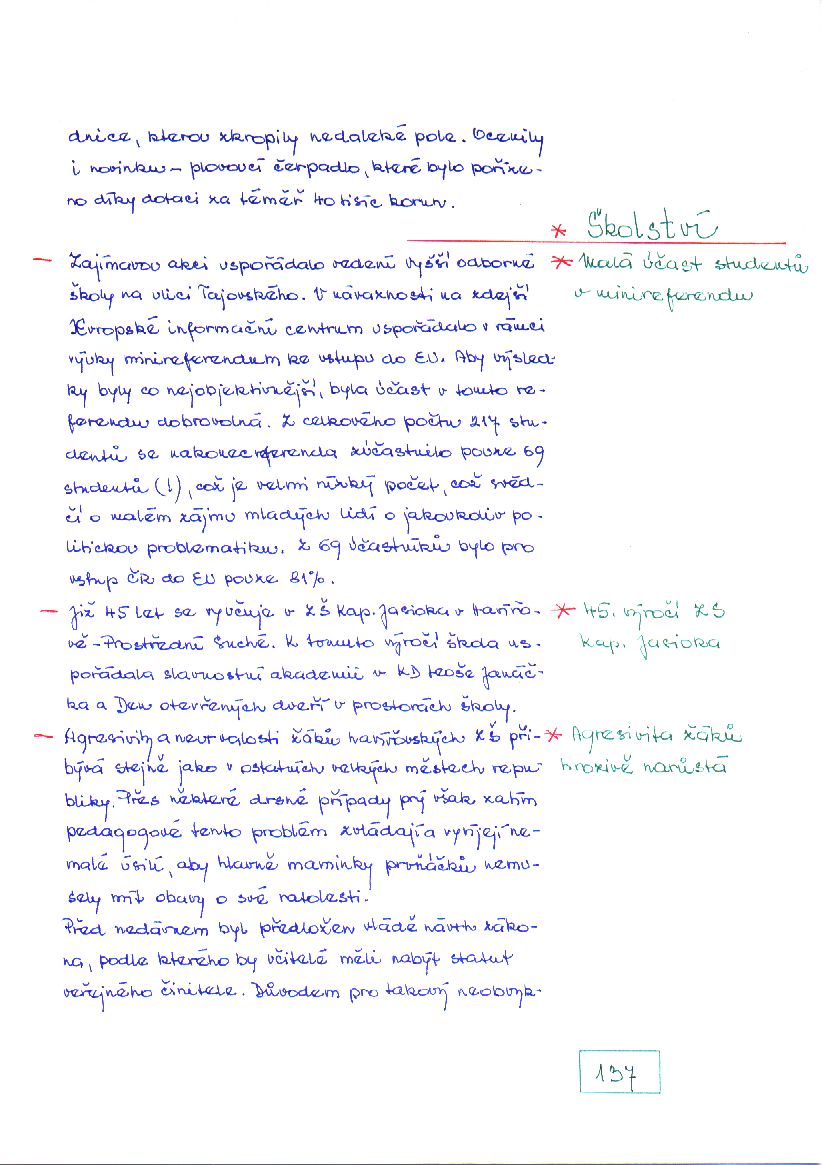 dnice, kterou zkropily nedaleké pole. Ocenily
i novinku – plovoucí čerpadlo, které bylo poříze-
no díky dotaci za téměř 40 tisíc korun.
* Školství
– Zajímavou akci uspořádalo vedení vyšší odborné
* Malá účast studentů
školy na ulici Tajovského. V návaznosti na zdejší
v minireferendu
Evropské informační centrum uspořádalo v rámci
výuky minireferendum ke vstupu do EU. Aby výsled-
ky byly co nejobjektivnější, byla účast v tomto re-
ferendu dobrovolná. Z celkového počtu 217 stu-
dentů se nakonec referenda zúčastnilo pouze 69
studentů (!), což je velmi nízký počet, což svěd-
čí o malém zájmu mladých lidí o jakoukoliv po-
litickou problematiku. Z 69 účastníků bylo pro
vstup ČR do EU pouze 81%.
– Již 45 let se vyučuje v ZŠ Kap. Jasioka v Havířo-
* 45. výročí ZŠ
vě – Prostřední Suché. K tomuto výročí škola us-
Kap. Jasioka
pořádala slavnostní akademii v KD Leoše Janáč-
ka a Den otevřených dveří v prostorách školy.
– Agresivity a neurvalosti žáků havířovských ZŠ při-
* Agresivita žáků
bývá stejně jako v ostatních velkých městech repu
hrozivě narůstá
bliky. Přes některé drsné případy prý však zatím
pedagogové tento problém zvládají a vyvíjejí ne-
malé úsilí, aby hlavně maminky prvňáčků nemu-
sely mít obavy o své ratolesti.
Před nedávnem byl předložen vládě návrh záko-
na, podle kterého by učitelé měli nabýt statut
veřejného činitele. Důvodem pro takový neobvyk-
137